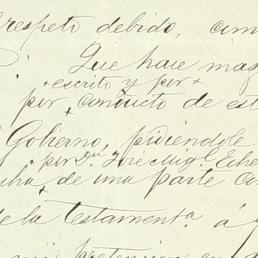 respeto debido,
Que hace mas
+ escrito y por +
por + conducto de est
Gobierno, pidiendole
+ por Dn. José Migl. Eche
cha + de una parte
de la testamenta. á
mi pretension